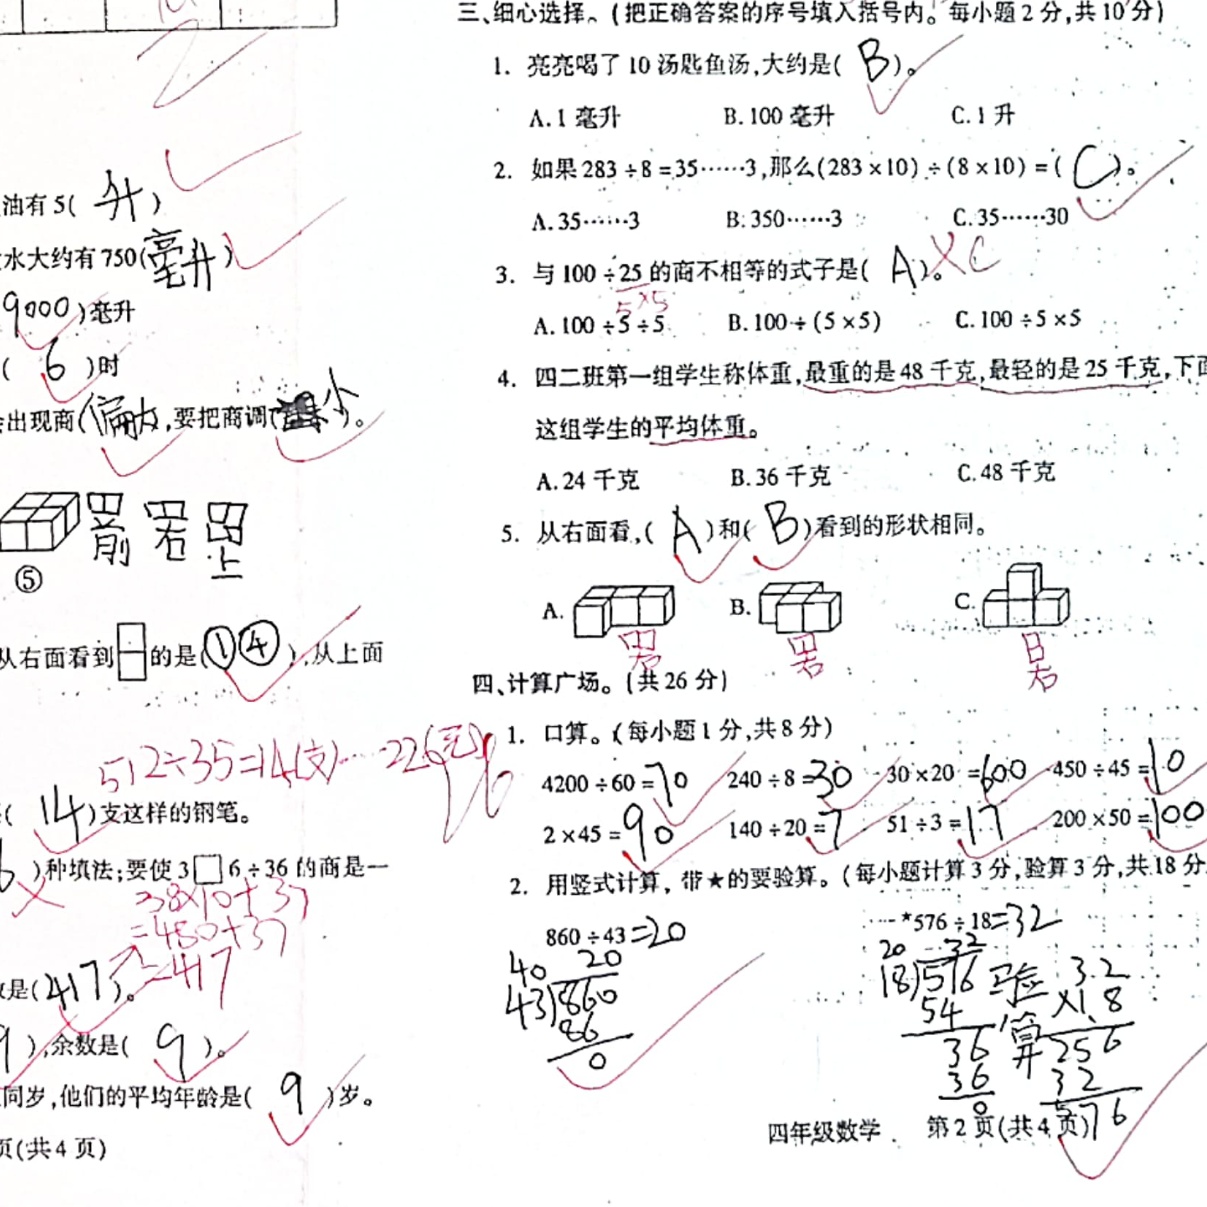 油有5(升)
水大约有750(毫升)
9000)毫升
(6)时
出现商(偏大,要把商调(小)。
前 右 上
⑤
从右面看到 的是(①④),从上面
512÷35=14(支)……22(元)
(14)支这样的钢笔。
)种填法;要使3□6÷36的商是一
38×10+37
=480+37
=417
是(417)。
9),余数是(9)。
同岁,他们的平均年龄是(9)岁。
页(共4页)
三、细心选择。(把正确答案的序号填入括号内。每小题2分,共10分)
1. 亮亮喝了10汤匙鱼汤,大约是(B)。
A.1毫升 B.100毫升 C.1升
2. 如果283÷8=35……3,那么(283×10)÷(8×10)=(C)。
A.35……3 B.350……3 C.35……30
3. 与100÷25的商不相等的式子是(A)。C
5×5
A.100÷5÷5 B.100÷(5×5) C.100÷5×5
4. 四二班第一组学生称体重,最重的是48千克,最轻的是25千克,下面
这组学生的平均体重。
A.24千克 B.36千克 C.48千克
5. 从右面看,(A)和(B)看到的形状相同。
A. B. C.
右 右 右
四、计算广场。(共26分)
1. 口算。(每小题1分,共8分)
4200÷60=70 240÷8=30 30×20=600 450÷45=10
2×45=90 140÷20=7 51÷3=17 200×50=100
2. 用竖式计算,带★的要验算。(每小题计算3分,验算3分,共18分
860÷43=20 *576÷18=32
40 20
43)860
86
0
20 32
18)576 验算 3.2
54 ×1.8
36 256
36 32
0 576
四年级数学 第2页(共4页)